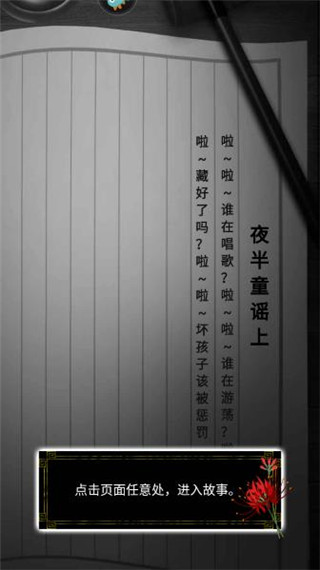 夜半童谣上
啦~啦~谁在唱歌?啦~啦~谁在游荡?
啦~藏好了吗?啦~啦~坏孩子该被惩罚
点击页面任意处，进入故事。